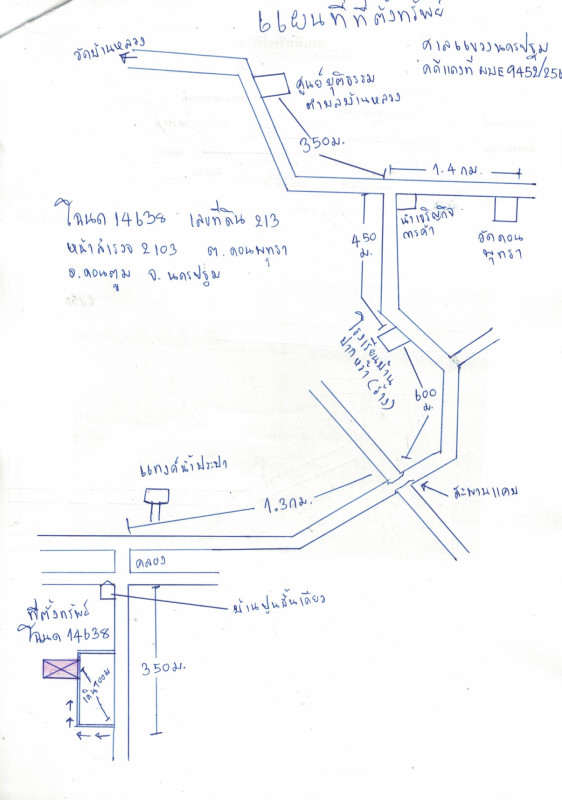 แผนที่ที่ตั้งทรัพย์
ศาลแขวงนครปฐม
คดีแดงที่ ผบE9452/256
วัดบ้านหลวง
ศูนย์ยุติธรรม
ตำบลบ้านหลวง
350ม.
1.4 กม.
โฉนด 14638 เลขที่ดิน 213
หน้าสำรวจ 2103 ต. ดอนพุทรา
อ. ดอนตูม จ. นครปฐม
450
ม.
นำเจริญกิจ
การค้า
วัดดอน
พุทรา
โรงเรียนบ้าน
ปากหว้า (ร้าง)
600
ม.
แทงค์น้ำประปา
1.3 กม.
สะพานแคบ
คลอง
บ้านปูนชั้นเดียว
ที่ตั้งทรัพย์
โฉนด 14638
350ม.
เดิน100ม